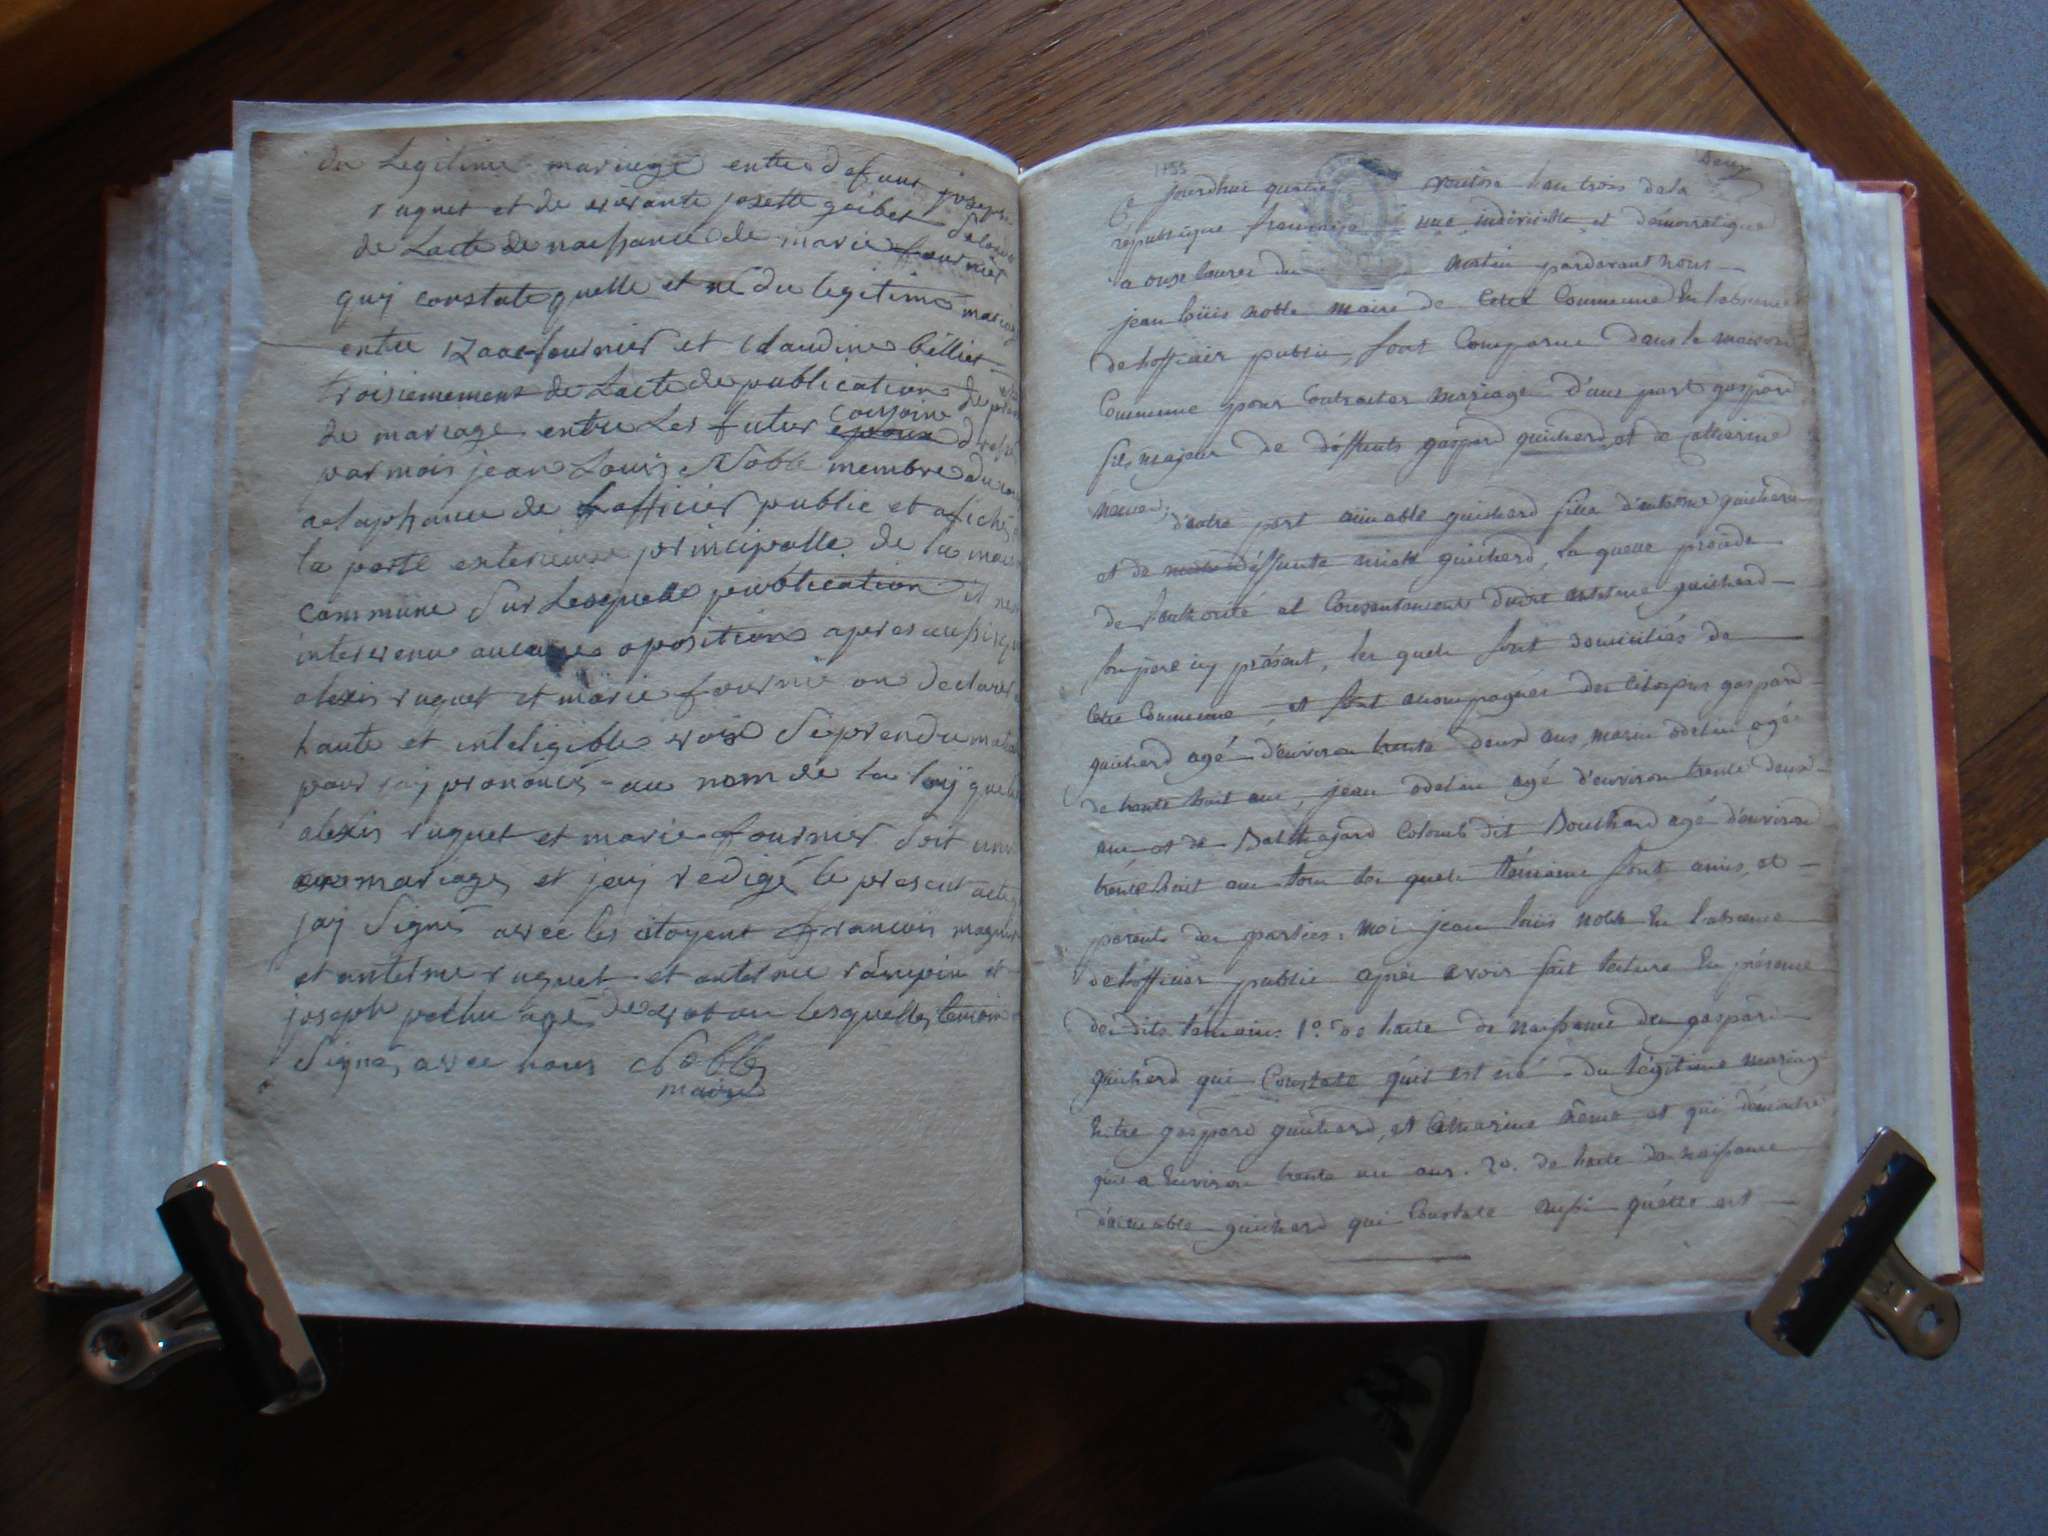 du Legitime mariage entre defunt joseph
ruguet et de vivante josette goibet
de Lacte de naissance de marie fournier
quy constate quelle et né du legitime mariage
entre izaac fournier et Claudine billiet
troisiemement de Lacte de publication de
de mariage entre Les futur conjoint epoux
par mois jean Louis Noble membre du
a Lapsance de Lofficier public et afiché
la porte exterieure principalle de la mais
commune Sur Lesquelle publication il
intervenu aucune oposition apres
alexis ruguet et marie fournié on declarer
haute et inteligible voix
pour jay prononcés au nom de la loÿ que
alexis ruguet et marie fournier Soit unis
en mariage et jay redigé le present acte
jay Signés avec les citoyent francois
et antelme ruguet et antelme et
joseph agé de Lesquelles temoin
Signé avec nous Noble
maire
1795
Ce jourdhui quatre ventose l'an trois de la
république francaise une indivisible et démocratique
a onze heures du matin pardevant nous
jean loüis noble maire de cette Commune En l'absence
de l'officier public, sont Comparu dans la maison
Commune pour Contracter mariage d'une part gaspard
fils majeur de déffunts gaspard guicherd et de catherine
d'autre part aimable guicherd fille d'antelme guicherd
et de déffunte guicherd, la quelle procéde
de l'authorité et Consentement dudit antelme guicherd
son pere icy présent, les quels sont domiciliés de
cette Commune, et sont accompagnés des citoyens gaspard
guicherd agé d'environ trente deux ans, marin odelin agé
de trente huit ans, jean odelin agé d'environ trente deux
ans et de Balthazard Colomb dit Bouchard agé d'environ
trente huit ans tous les quels témoins sont amis et
parents des parties. moi jean louis noble En l'absence
de l'officier public après avoir fait lecture En présence
des dits témoins 1º. de l'acte de naissance de gaspard
guicherd qui Constate qu'il est né du légitime mariage
Entre gaspard guicherd, et Catharine et qui démontre
qu'il a Environ trente un ans. 2º. de l'acte de naissance
d'aimable guicherd qui Constate aussi qu'elle est